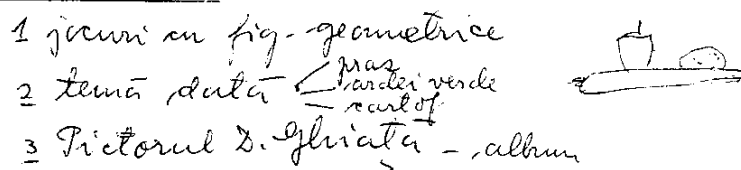 1 jocuri cu fig. geometrice
2 temă dată praz
ardei verde
cartof
3 Pictorul D. Ghiață - album